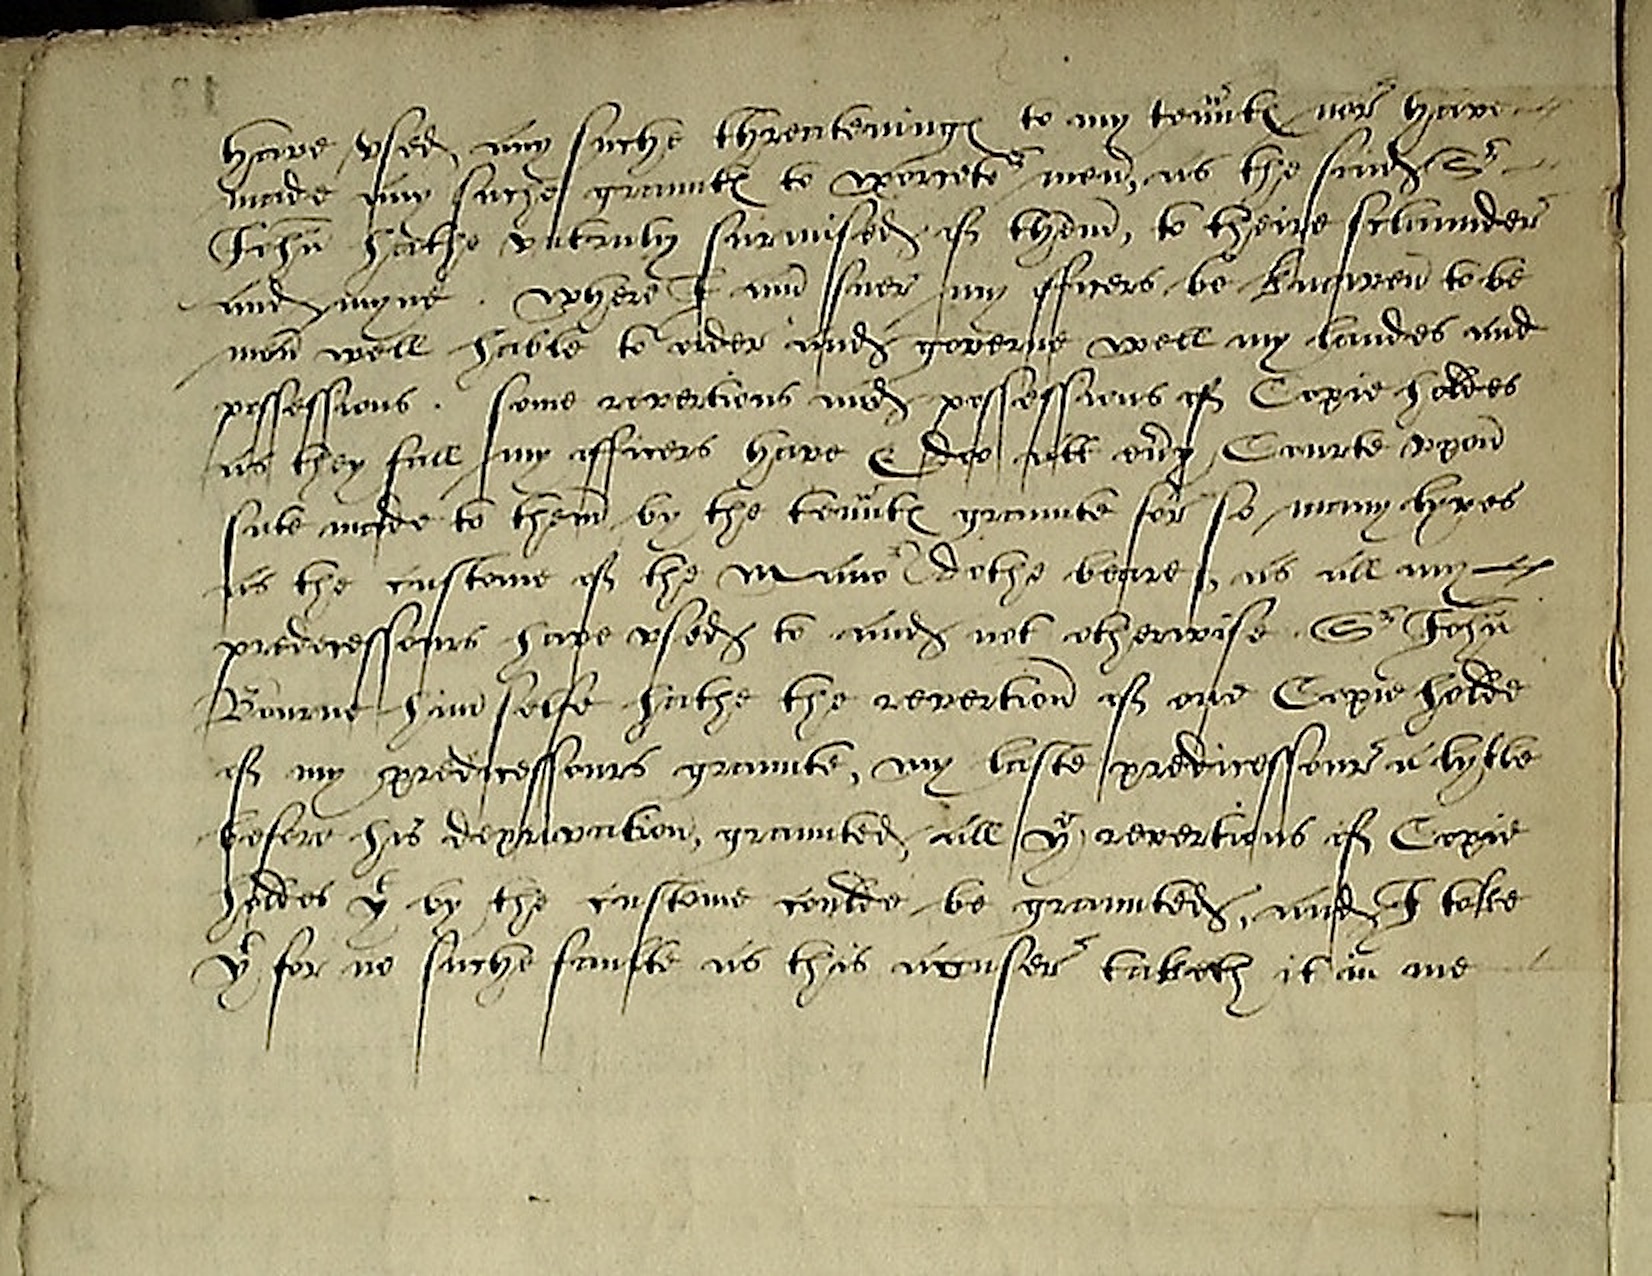 have vsed any suche threateninges to my tenãtes nor have
made any suche grauntes to worceter men, as the said Sr
Iohn hathe vntruly surmised of them, to theire sclaunder
and myne. where I am suer my officers be knowen to be
men well hable to order and governe well my landes and
possessions. some revertions and possessions of Copie holdes
as they fall my officers have & doo att eũy Courte vpon
sute made to them by the tenãtes graunte for so many lyves
as the custome of the Manor dothe beare, as all my
predecessours have vsed to and not otherwise. Sr Iohn
Bourne him selfe hathe the revertion of one Copie holde
of my predicessours graunte, my laste predicessour a lytle
before his deprivation, graunted all ye revertions of Copie
holdes yt by the custome coulde be graunted, and I take
yt for no suche faulte as this accuser taketh it in me